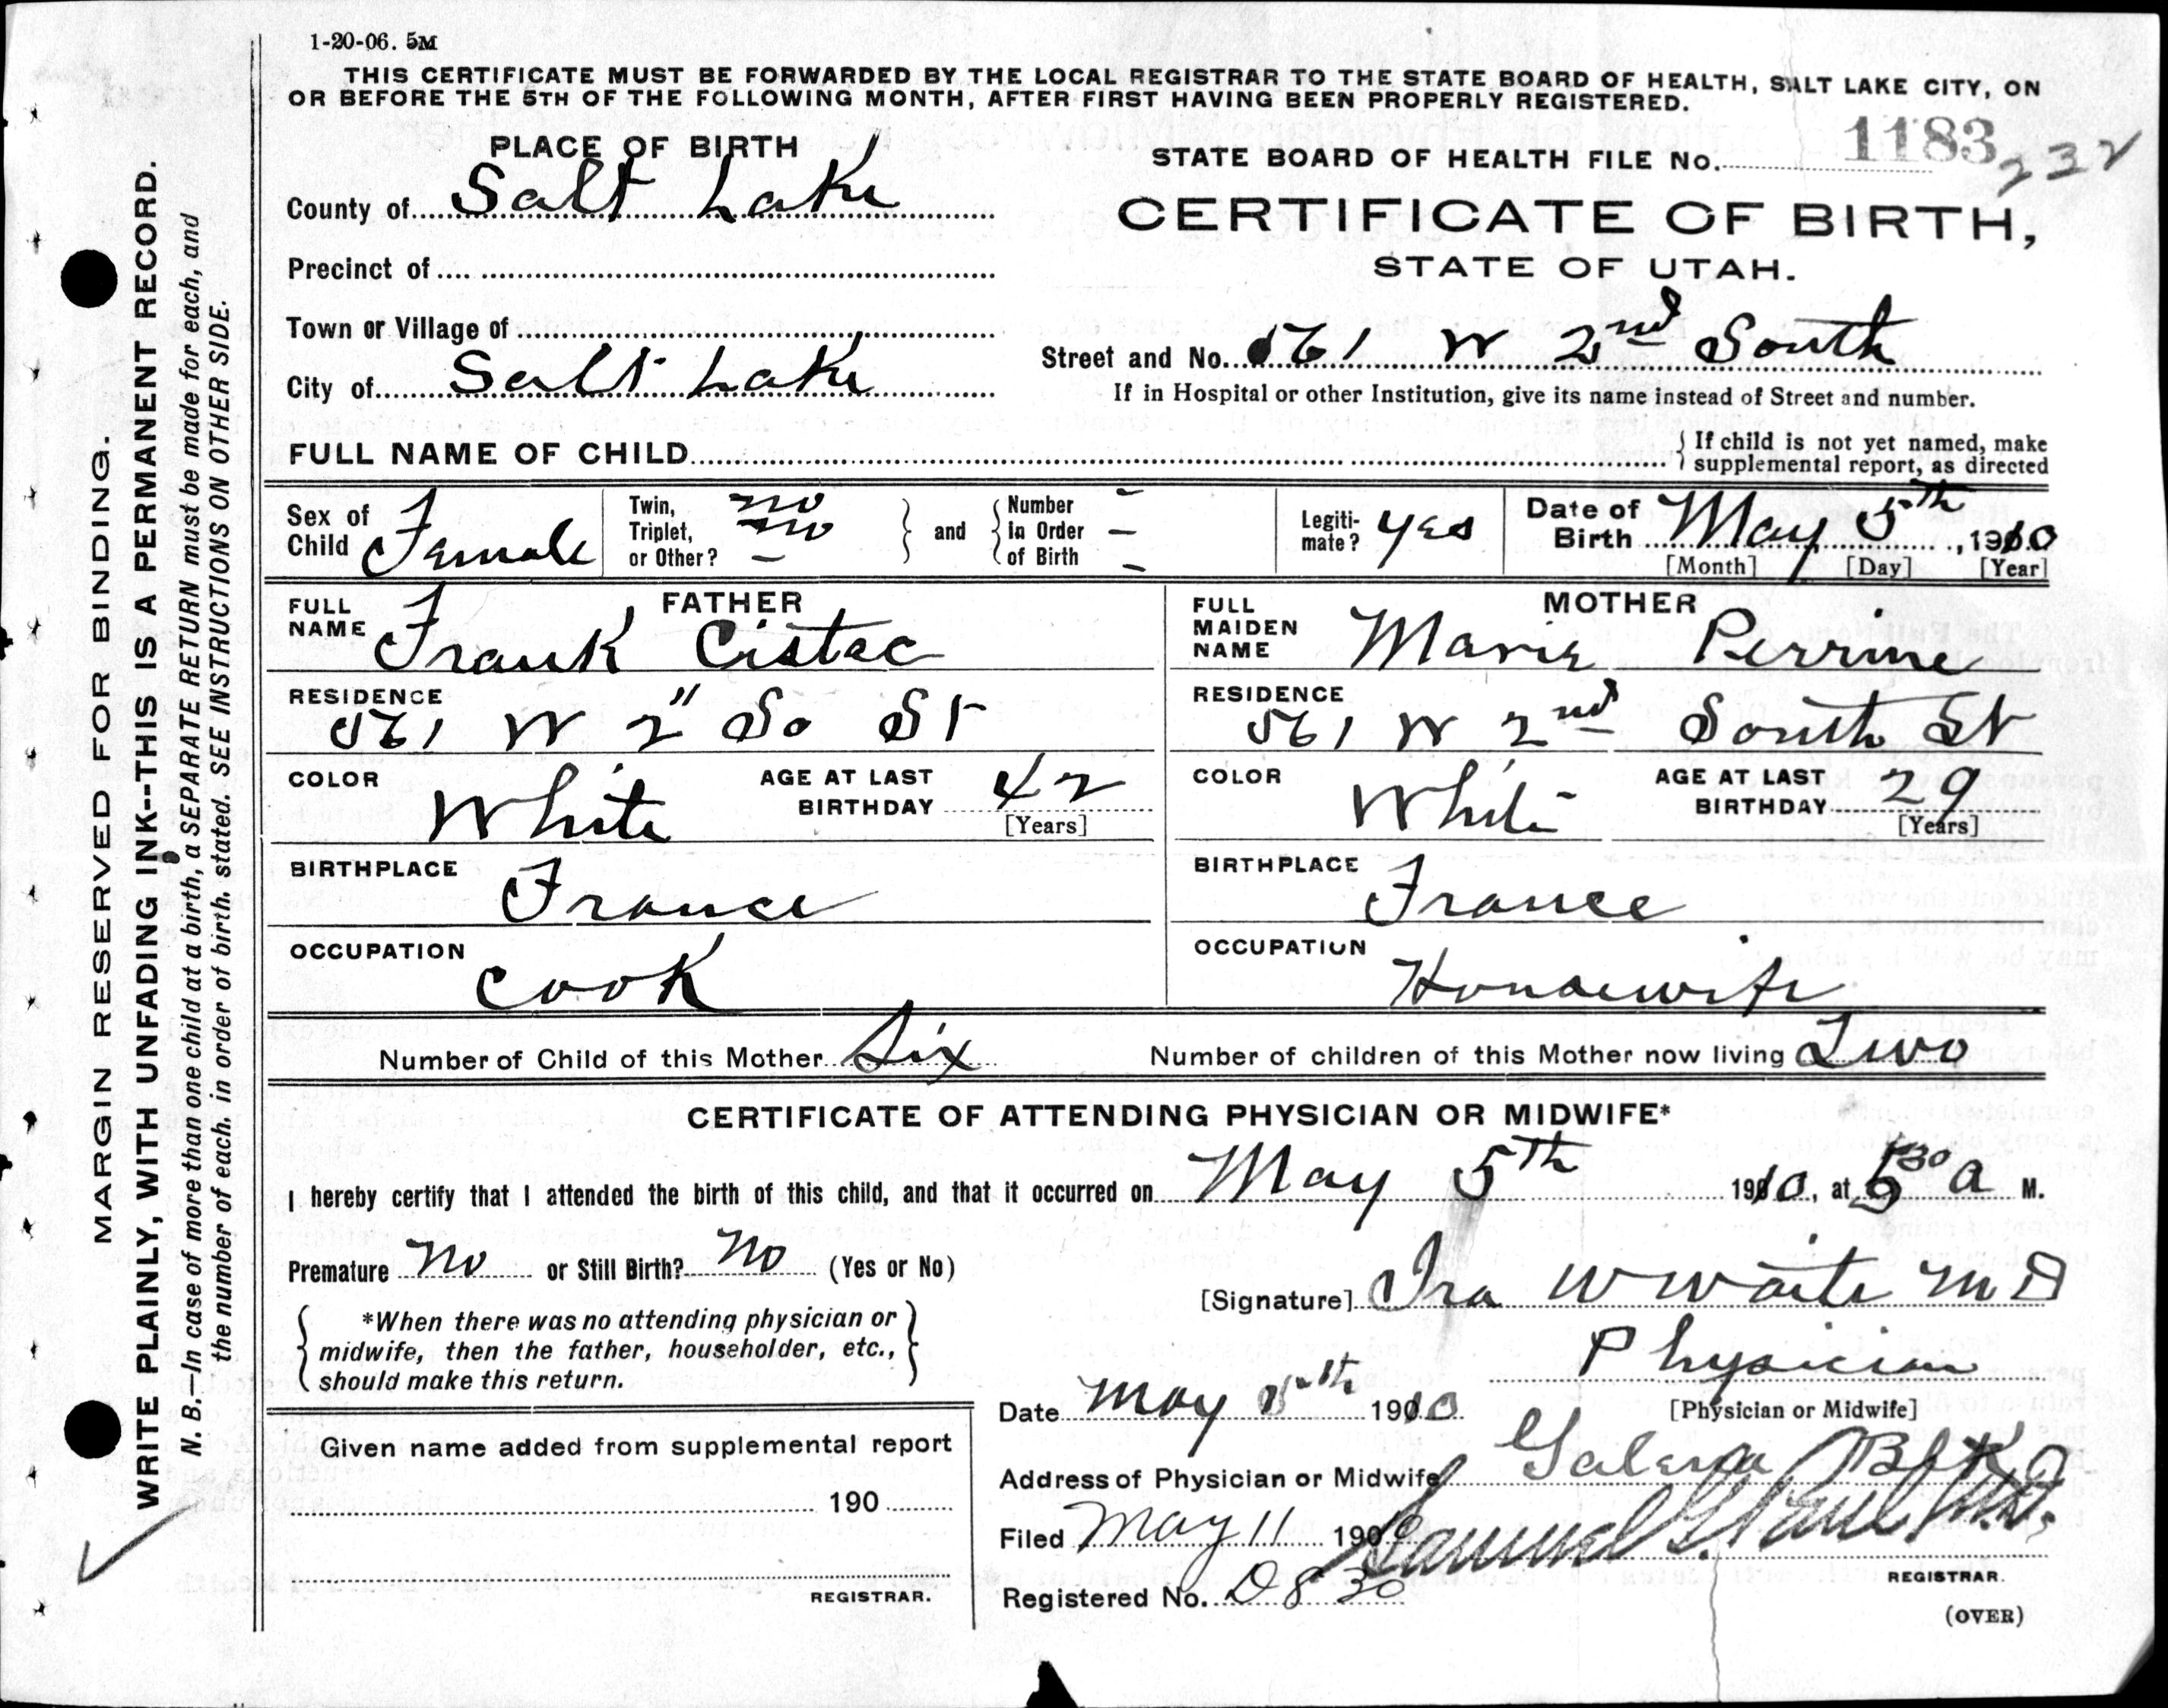 1-20-06. 5M
THIS CERTIFICATE MUST BE FORWARDED BY THE LOCAL REGISTRAR TO THE STATE BOARD OF HEALTH, SALT LAKE CITY, ON
OR BEFORE THE 5TH OF THE FOLLOWING MONTH, AFTER FIRST HAVING BEEN PROPERLY REGISTERED.
MARGIN RESERVED FOR BINDING.
WRITE PLAINLY, WITH UNFADING INK--THIS IS A PERMANENT RECORD.
N. B.—In case of more than one child at a birth, a SEPARATE RETURN must be made for each, and
the number of each, in order of birth, stated. SEE INSTRUCTIONS ON OTHER SIDE.
PLACE OF BIRTH
County of Salt Lake
Precinct of
Town or Village of
City of Salt Lake
STATE BOARD OF HEALTH FILE No. 1183 232
CERTIFICATE OF BIRTH,
STATE OF UTAH.
Street and No. 561 W 2nd South
If in Hospital or other Institution, give its name instead of Street and number.
FULL NAME OF CHILD
{ If child is not yet named, make
supplemental report, as directed
Sex of Child Female
Twin, no
Triplet, no
or Other? –
} and {
Number –
in Order –
of Birth –
Legiti-
mate? yes
Date of
Birth May 5th, 1910
[Month] [Day] [Year]
FATHER
FULL
NAME Frank Cistac
RESIDENCE
561 W 2" So St
COLOR White
AGE AT LAST
BIRTHDAY 42
[Years]
BIRTHPLACE France
OCCUPATION Cook
MOTHER
FULL
MAIDEN
NAME Marie Perrine
RESIDENCE
561 W 2nd South St
COLOR White
AGE AT LAST
BIRTHDAY 29
[Years]
BIRTHPLACE France
OCCUPATION Housewife
Number of Child of this Mother Six
Number of children of this Mother now living Two
CERTIFICATE OF ATTENDING PHYSICIAN OR MIDWIFE*
I hereby certify that I attended the birth of this child, and that it occurred on May 5th 1910, at 530 a M.
Premature No or Still Birth? No (Yes or No)
{ *When there was no attending physician or
midwife, then the father, householder, etc.,
should make this return. }
[Signature] Ira W Waite MD
Physician
[Physician or Midwife]
Date May 1910
Address of Physician or Midwife Galena Blk
Filed May 11 190 Samuel G. Paul M.D.
REGISTRAR.
Registered No. D830
(OVER)
Given name added from supplemental report
190
REGISTRAR.